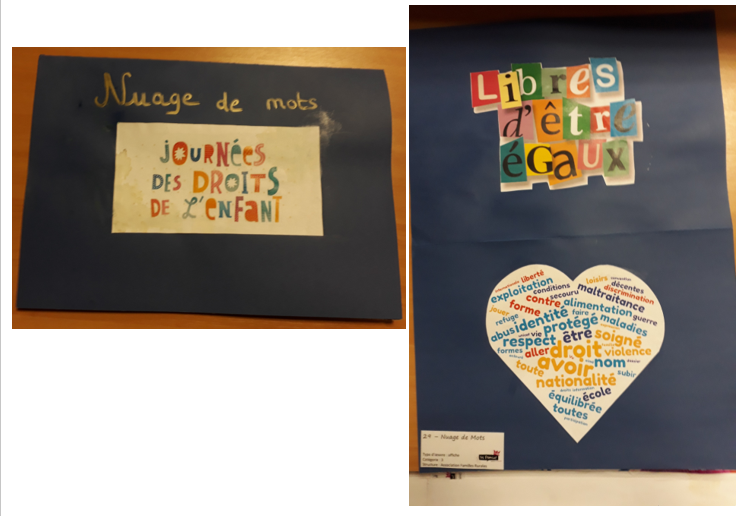 Nuage de mots
JOURNées
DES DROITS
DE L'ENFANT
Libres
d'être
éGaux
liberté
exploitation
conditions
secouru
loisirs
décentes
discrimination
maltraitance
contre
alimentation
jouer
forme
faire
guerre
refuge
identité
protégé
maladies
abus
vie
être
soigné
respect
formes
aller
droit
violence
avoir
nom
toute
subir
nationalité
école
équilibrée
toutes
participation
24 - Nuage de Mots